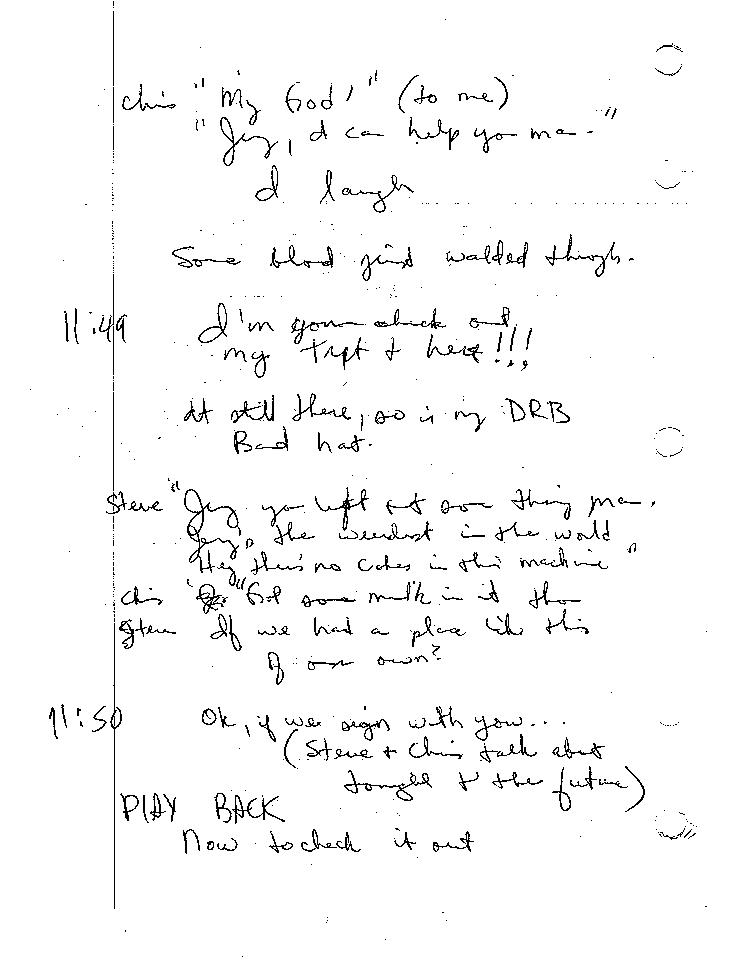 Chris "My God!" (to me)
"Jerry, I can help you man."
I laugh
Some blond just walked through.
11:49 I'm gonna check out
my Trpt & here!!!
It still there, so is my DRB
Band hat.
Steve "Jerry you left out some thing man.
Jerry's the weirdest in the world
Hey there's no Cokes in this machine"
Chris "Got some milk in it tho
Steve If we had a place like this
of our own?
11:50 Ok, if we sign with you...
(Steve & Chris talk about
tonight & the future)
PLAY BACK
Now to check it out